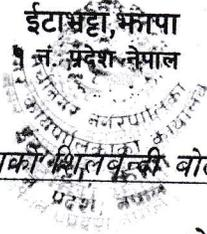 ईटाभट्टा, झापा
१ नं. प्रदेश नेपाल
नगरपालिका
कार्यपालिकाको कार्यालय
को शिलबन्दी बोल
प्रदेश, नेपाल